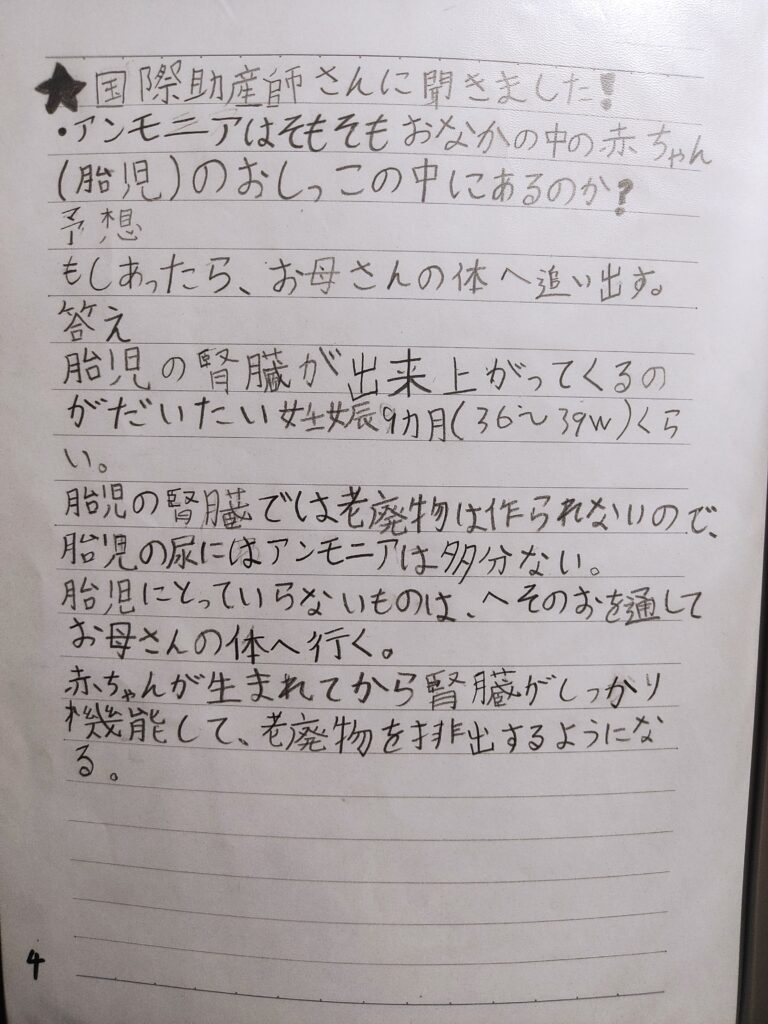 ★国際助産師さんに聞きました!
・アンモニアはそもそもおなかの中の赤ちゃん
(胎児)のおしっこの中にあるのか?
予想
もしあったら、お母さんの体へ追い出す。
答え
胎児の腎臓が出来上がってくるの
がだいたい妊娠9カ月(36〜39w)くら
い。
胎児の腎臓では老廃物は作られないので、
胎児の尿にはアンモニアは多分ない。
胎児にとっていらないものは、へそのおを通して
お母さんの体へ行く。
赤ちゃんが生まれてから腎臓がしっかり
機能して、老廃物を排出するようにな
る。
4